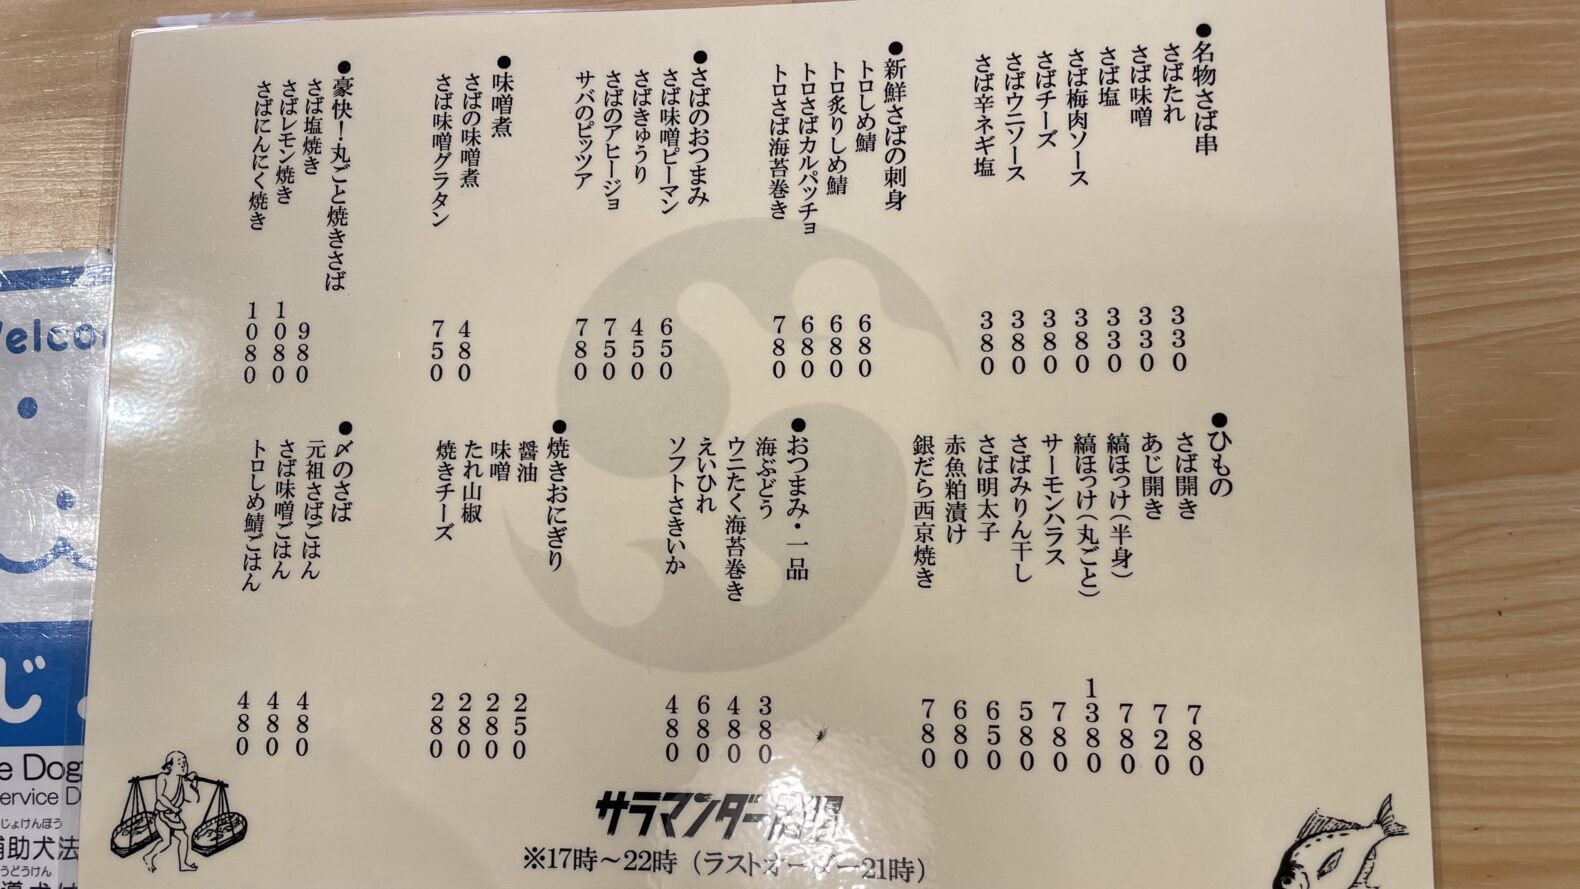 ●名物さば串
さばたれ 330
さば味噌 330
さば塩 330
さば梅肉ソース 380
さばチーズ 380
さばウニソース 380
さば辛ネギ塩 380
●新鮮さばの刺身
トロしめ鯖 680
トロ炙りしめ鯖 680
トロさばカルパッチョ 680
トロさば海苔巻き 780
●さばのおつまみ
さば味噌ピーマン 650
さばきゅうり 450
さばのアヒージョ 750
サバのピッツア 780
●味噌煮
さばの味噌煮 480
さば味噌グラタン 750
●豪快！丸ごと焼きさば
さば塩焼き 980
さばレモン焼き 1080
さばにんにく焼き 1080
●ひもの
さば開き 780
あじ開き 720
縞ほっけ（半身） 780
縞ほっけ（丸ごと） 1380
サーモンハラス 780
さばみりん干し 580
さば明太子 650
赤魚粕漬け 680
銀だら西京焼き 780
●おつまみ・一品
海ぶどう 380
ウニたく海苔巻き 480
えいひれ 680
ソフトさきいか 480
●焼きおにぎり
醤油 250
味噌 280
たれ山椒 280
焼きチーズ 280
●〆のさば
元祖さばごはん 480
さば味噌ごはん 480
トロしめ鯖ごはん 480
サラマンダー
※17時～22時（ラストオーダー21時）
e Dog
ervice D
じょけんぽう
補助犬法
うどうけん